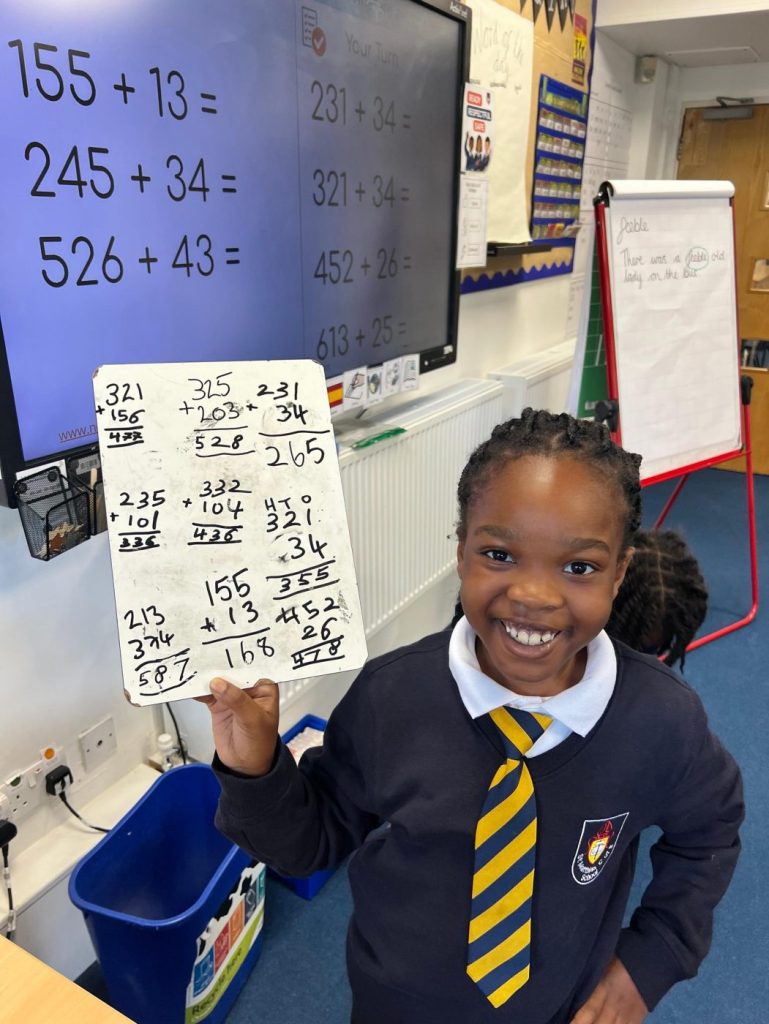 155 + 13 =
245 + 34 =
526 + 43 =
Your Turn
231 + 34 =
321 + 34 =
452 + 26 =
613 + 25 =
Word of the
day
READY
RESPECTFUL
SAFE
feeble
There was a feeble old
lady on the bus
321
+156
477
325
+203
528
+231
34
265
235
+101
336
332
+104
436
H T O
321
34
355
213
374
587
155
+13
168
+452
26
478
Recycle